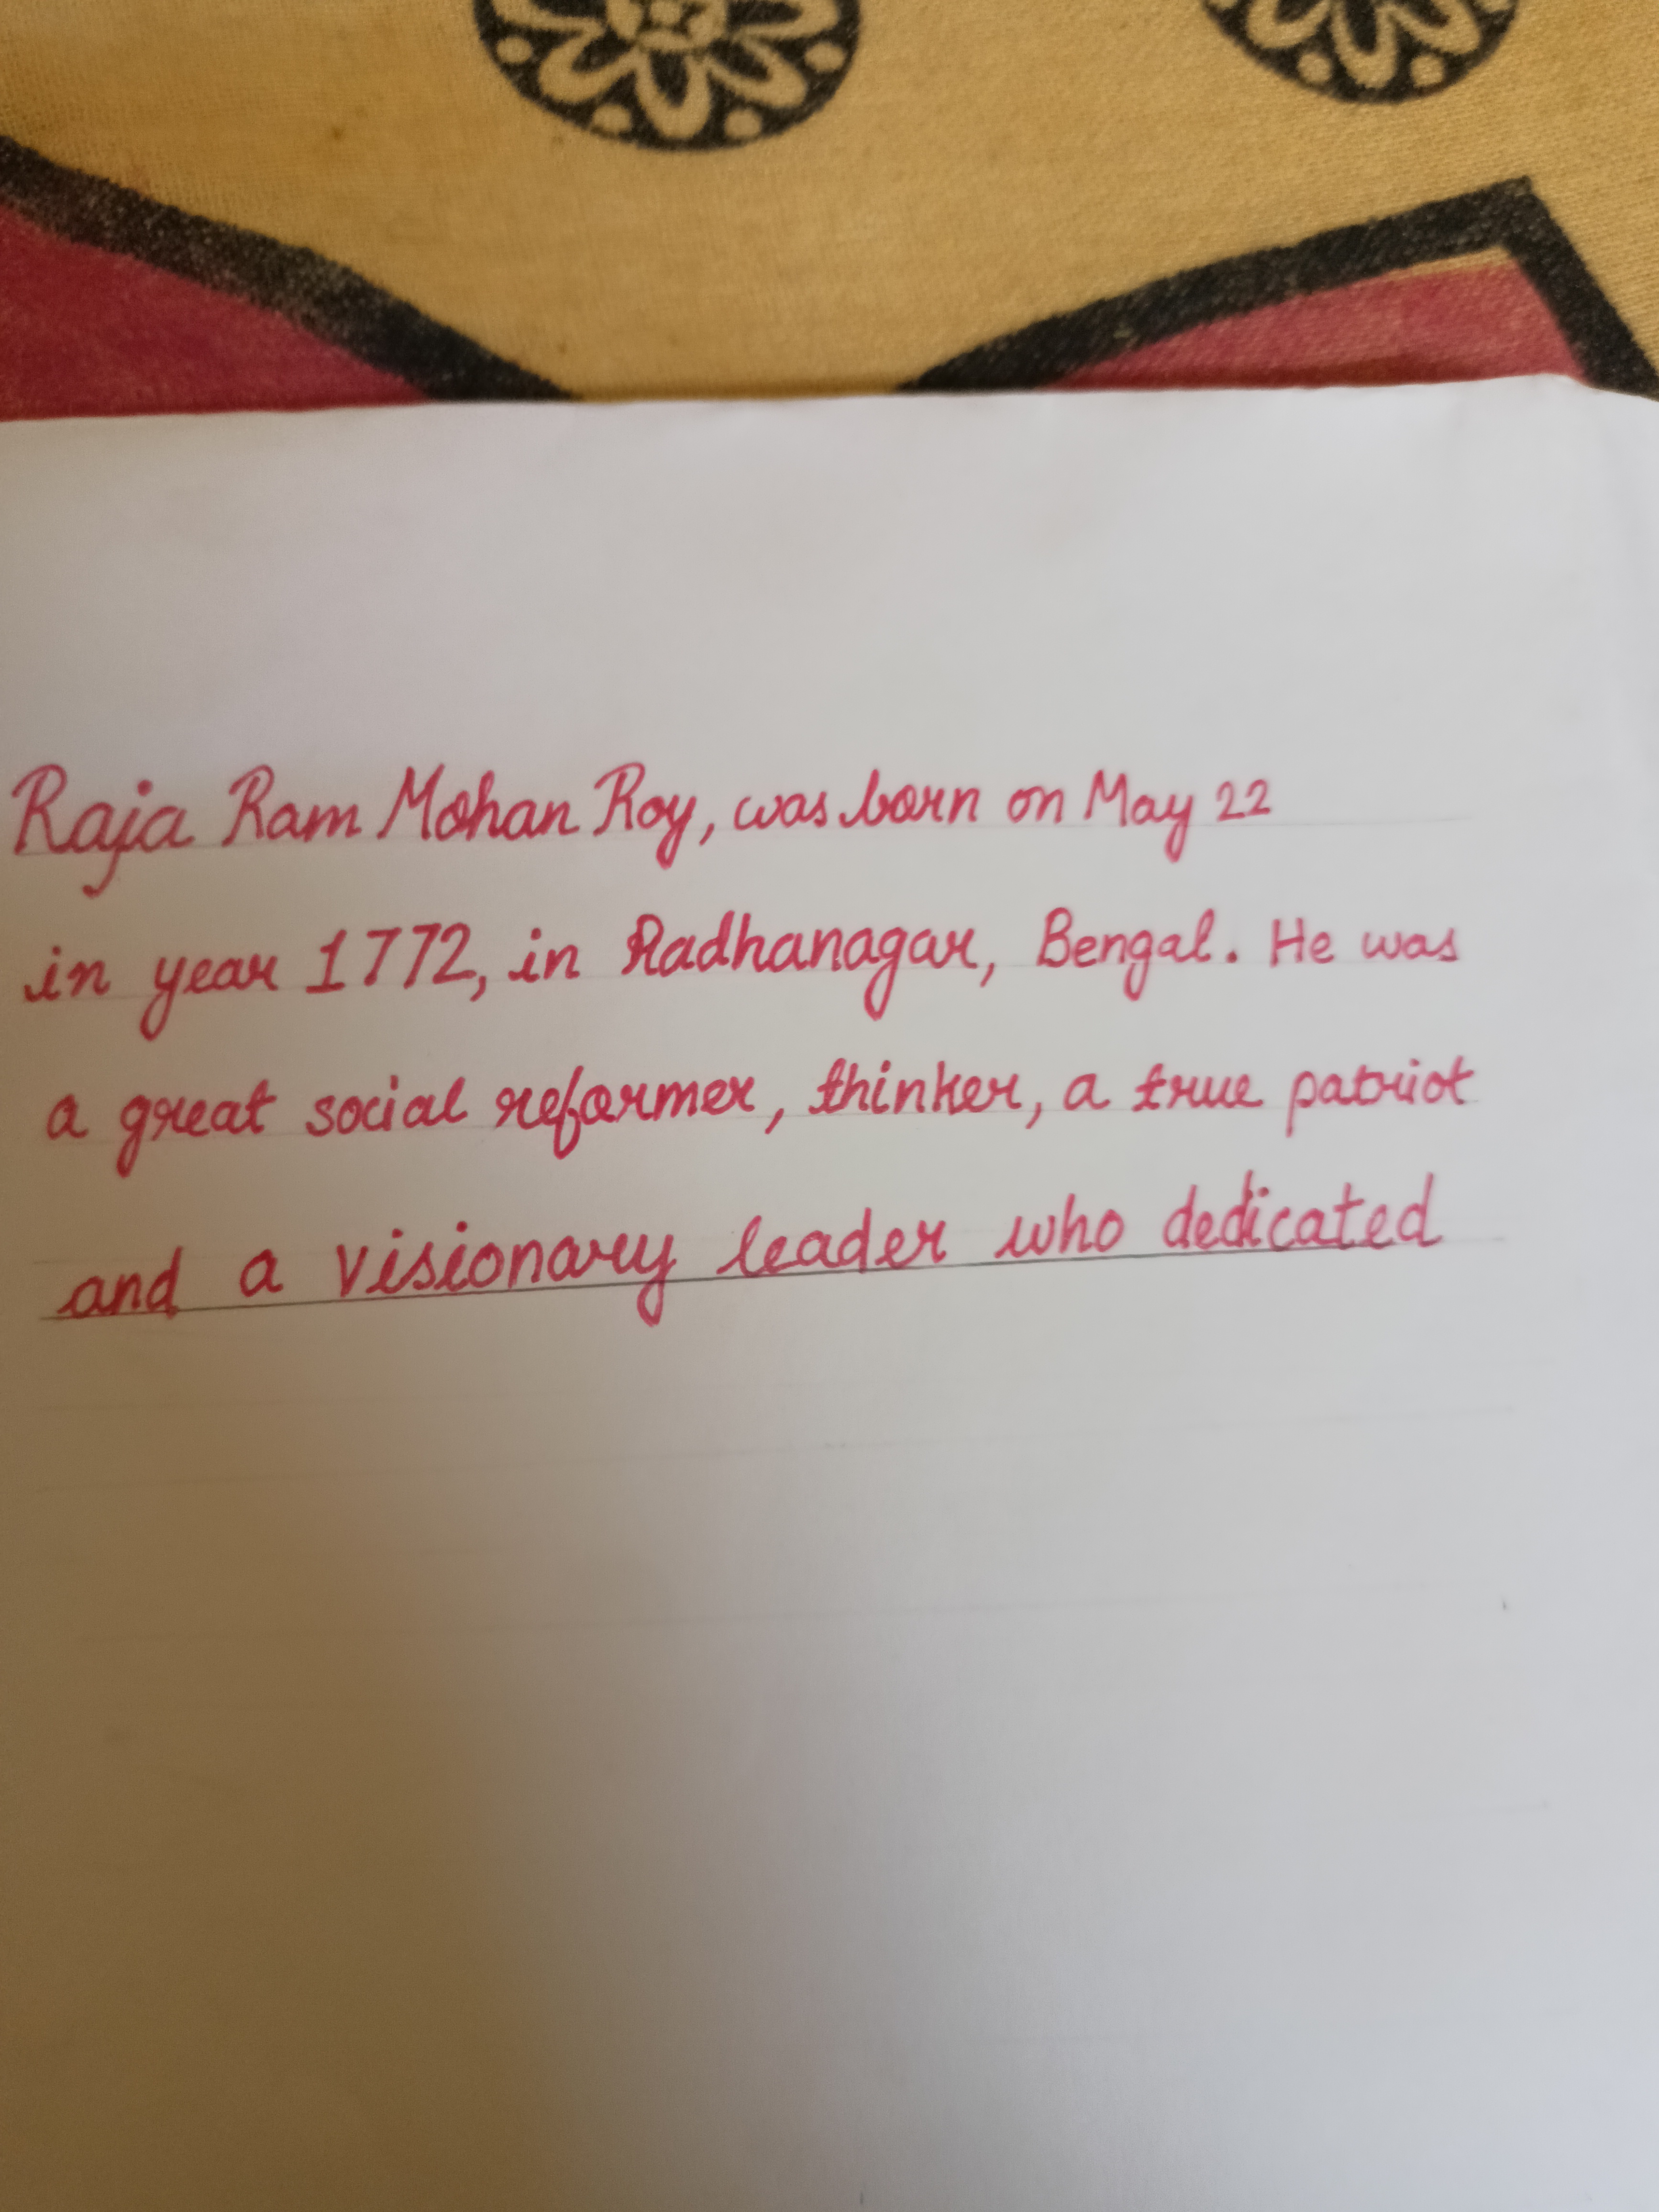 Raja Ram Mohan Roy, was born on May 22
in year 1772, in Radhanagar, Bengal. He was
a great social reformer, thinker, a true patriot
and a visionary leader who dedicated